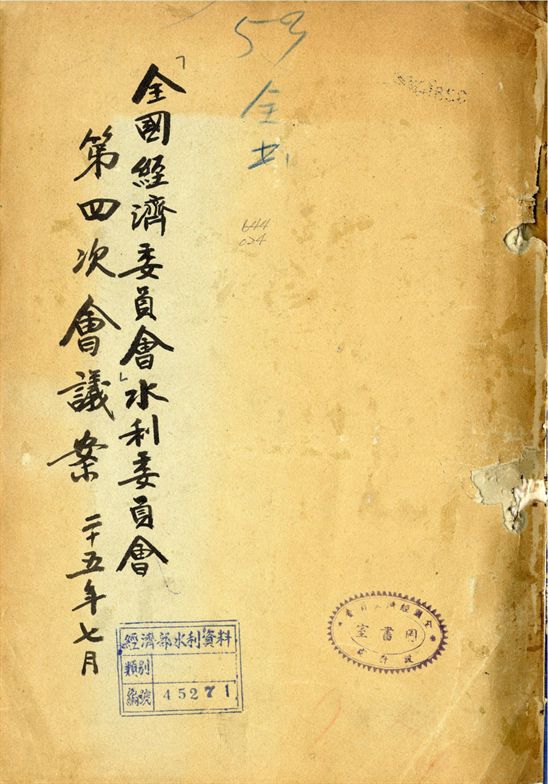 「全國經濟委員會」水利委員會
第四次會議案 二十五年七月
59
全
644
024
經濟部水利資料
類別
編號 45271
圖書室